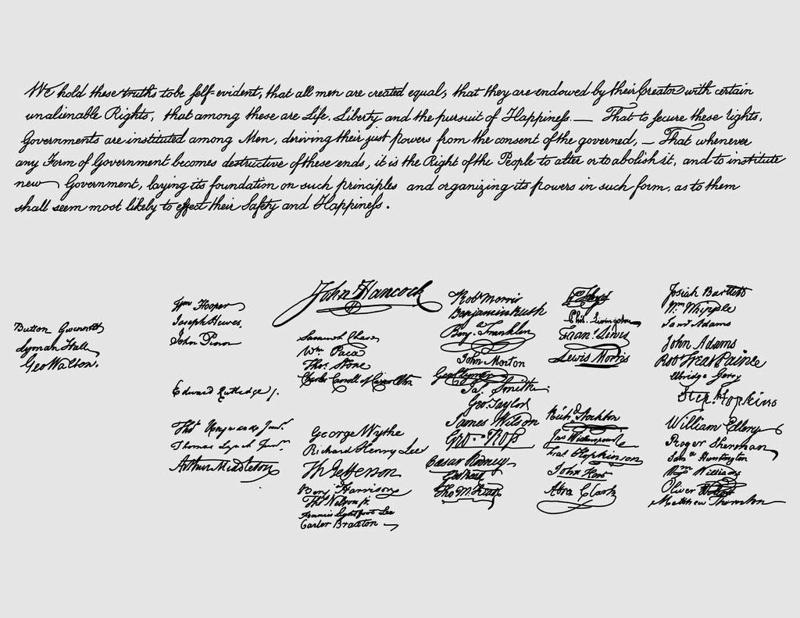 We hold these truths to be ſelf-evident, that all men are created equal, that they are endowed by their Creator with certain
unalienable Rights, that among these are Life, Liberty and the pursuit of Happineſs. — That to ſecure these rights,
Governments are instituted among Men, deriving their just powers from the consent of the governed, — That whenever
any Form of Government becomes destructive of these ends, it is the Right of the People to alter or to abolish it, and to institute
new Government, laying its foundation on such principles and organizing its powers in such form, as to them
shall seem most likely to effect their Safety and Happineſs.
Button Gwinnett
Lyman Hall
Geo Walton.
Wm Hooper
Joseph Hewes,
John Penn
Edward Rutledge /.
Thos Heyward Junr.
Thomas Lynch Junr.
Arthur Middleton
John Hancock
Samuel Chase
Wm Paca
Thos. Stone
Charles Carroll of Carrollton
George Wythe
Richard Henry Lee
Th Jefferson
Benj Harrison
Thos Nelson jr.
Francis Lightfoot Lee
Carter Braxton
Robt Morris
Benjamin Rush
Benj. Franklin
John Morton
Geo Clymer
Jas. Smith
Geo. Taylor
James Wilson
Geo. Ross
Caesar Rodney
Geo Read
Tho M:Kean
Phil. Livingston
Frans. Lewis
Lewis Morris
Richd. Stockton
Jno Witherspoon
Fras. Hopkinson
John Hart
Abra Clark
Josiah Bartlett
Wm. Whipple
Saml Adams
John Adams
Robt Treat Paine
Elbridge Gerry
Step. Hopkins
William Ellery
Roger Sherman
Saml Huntington
Wm. Williams
Oliver Wolcott
Matthew Thornton